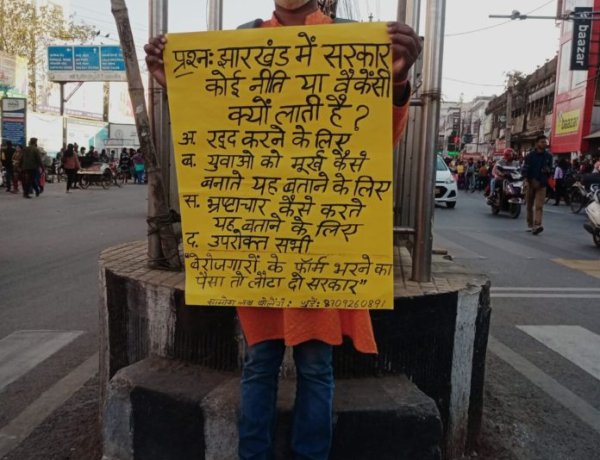 प्रश्नः झारखंड में सरकार
कोई नीति या वैकेंसी
क्यों लाती है ?
अ. रद्द करने के लिए
ब. युवाओ को मूर्ख कैसे
बनाते यह बताने के लिए
स. भ्रष्टाचार कैसे करते
यह बताने के लिए
द. उपरोक्त सभी
"बेरोजगारों के फॉर्म भरने का
पैसा तो लौटा दो सरकार"
baazar
baazar